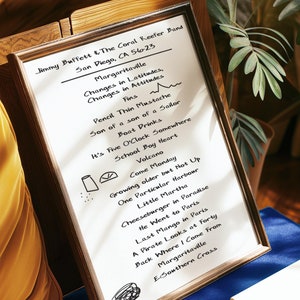 Jimmy Buffett & The Coral Reefer Band
San Diego, CA 56-23
Margaritaville
Changes in Latitudes,
Changes in Attitudes
Fins
Pencil Thin Mustache
Son of a son of a Sailor
Boat Drinks
It's Five O'Clock Somewhere
School Boy Heart
Volcano
Come Monday
Growing older but Not Up
One Particular Harbour
Little Martha
Cheeseburger in Paradise
He Went to Paris
Last Mango in Paris
A Pirate Looks at Forty
Back Where I Come From
Margaritaville
E:Southern Cross